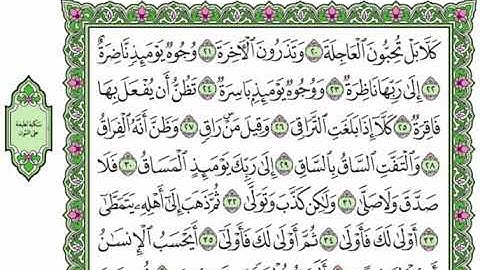 كَلَّا بَلْ تُحِبُّونَ الْعَاجِلَةَ ٢٠ وَتَذَرُونَ الْآخِرَةَ ٢١ وُجُوهٌ يَوْمَئِذٍ نَّاضِرَةٌ
٢٢ إِلَىٰ رَبِّهَا نَاظِرَةٌ ٢٣ وَوُجُوهٌ يَوْمَئِذٍ بَاسِرَةٌ ٢٤ تَظُنُّ أَن يُفْعَلَ بِهَا
فَاقِرَةٌ ٢٥ كَلَّا إِذَا بَلَغَتِ التَّرَاقِيَ ٢٦ وَقِيلَ مَنْ رَاقٍ ٢٧ وَظَنَّ أَنَّهُ الْفِرَاقُ
٢٨ وَالْتَفَّتِ السَّاقُ بِالسَّاقِ ٢٩ إِلَىٰ رَبِّكَ يَوْمَئِذٍ الْمَسَاقُ ٣٠ فَلَا
صَدَّقَ وَلَا صَلَّىٰ ٣١ وَلَٰكِن كَذَّبَ وَتَوَلَّىٰ ٣٢ ثُمَّ ذَهَبَ إِلَىٰ أَهْلِهِ يَتَمَطَّىٰ
٣٣ أَوْلَىٰ لَكَ فَأَوْلَىٰ ٣٤ ثُمَّ أَوْلَىٰ لَكَ فَأَوْلَىٰ ٣٥ أَيَحْسَبُ الْإِنسَانُ
سكتة لطيفة
على النون